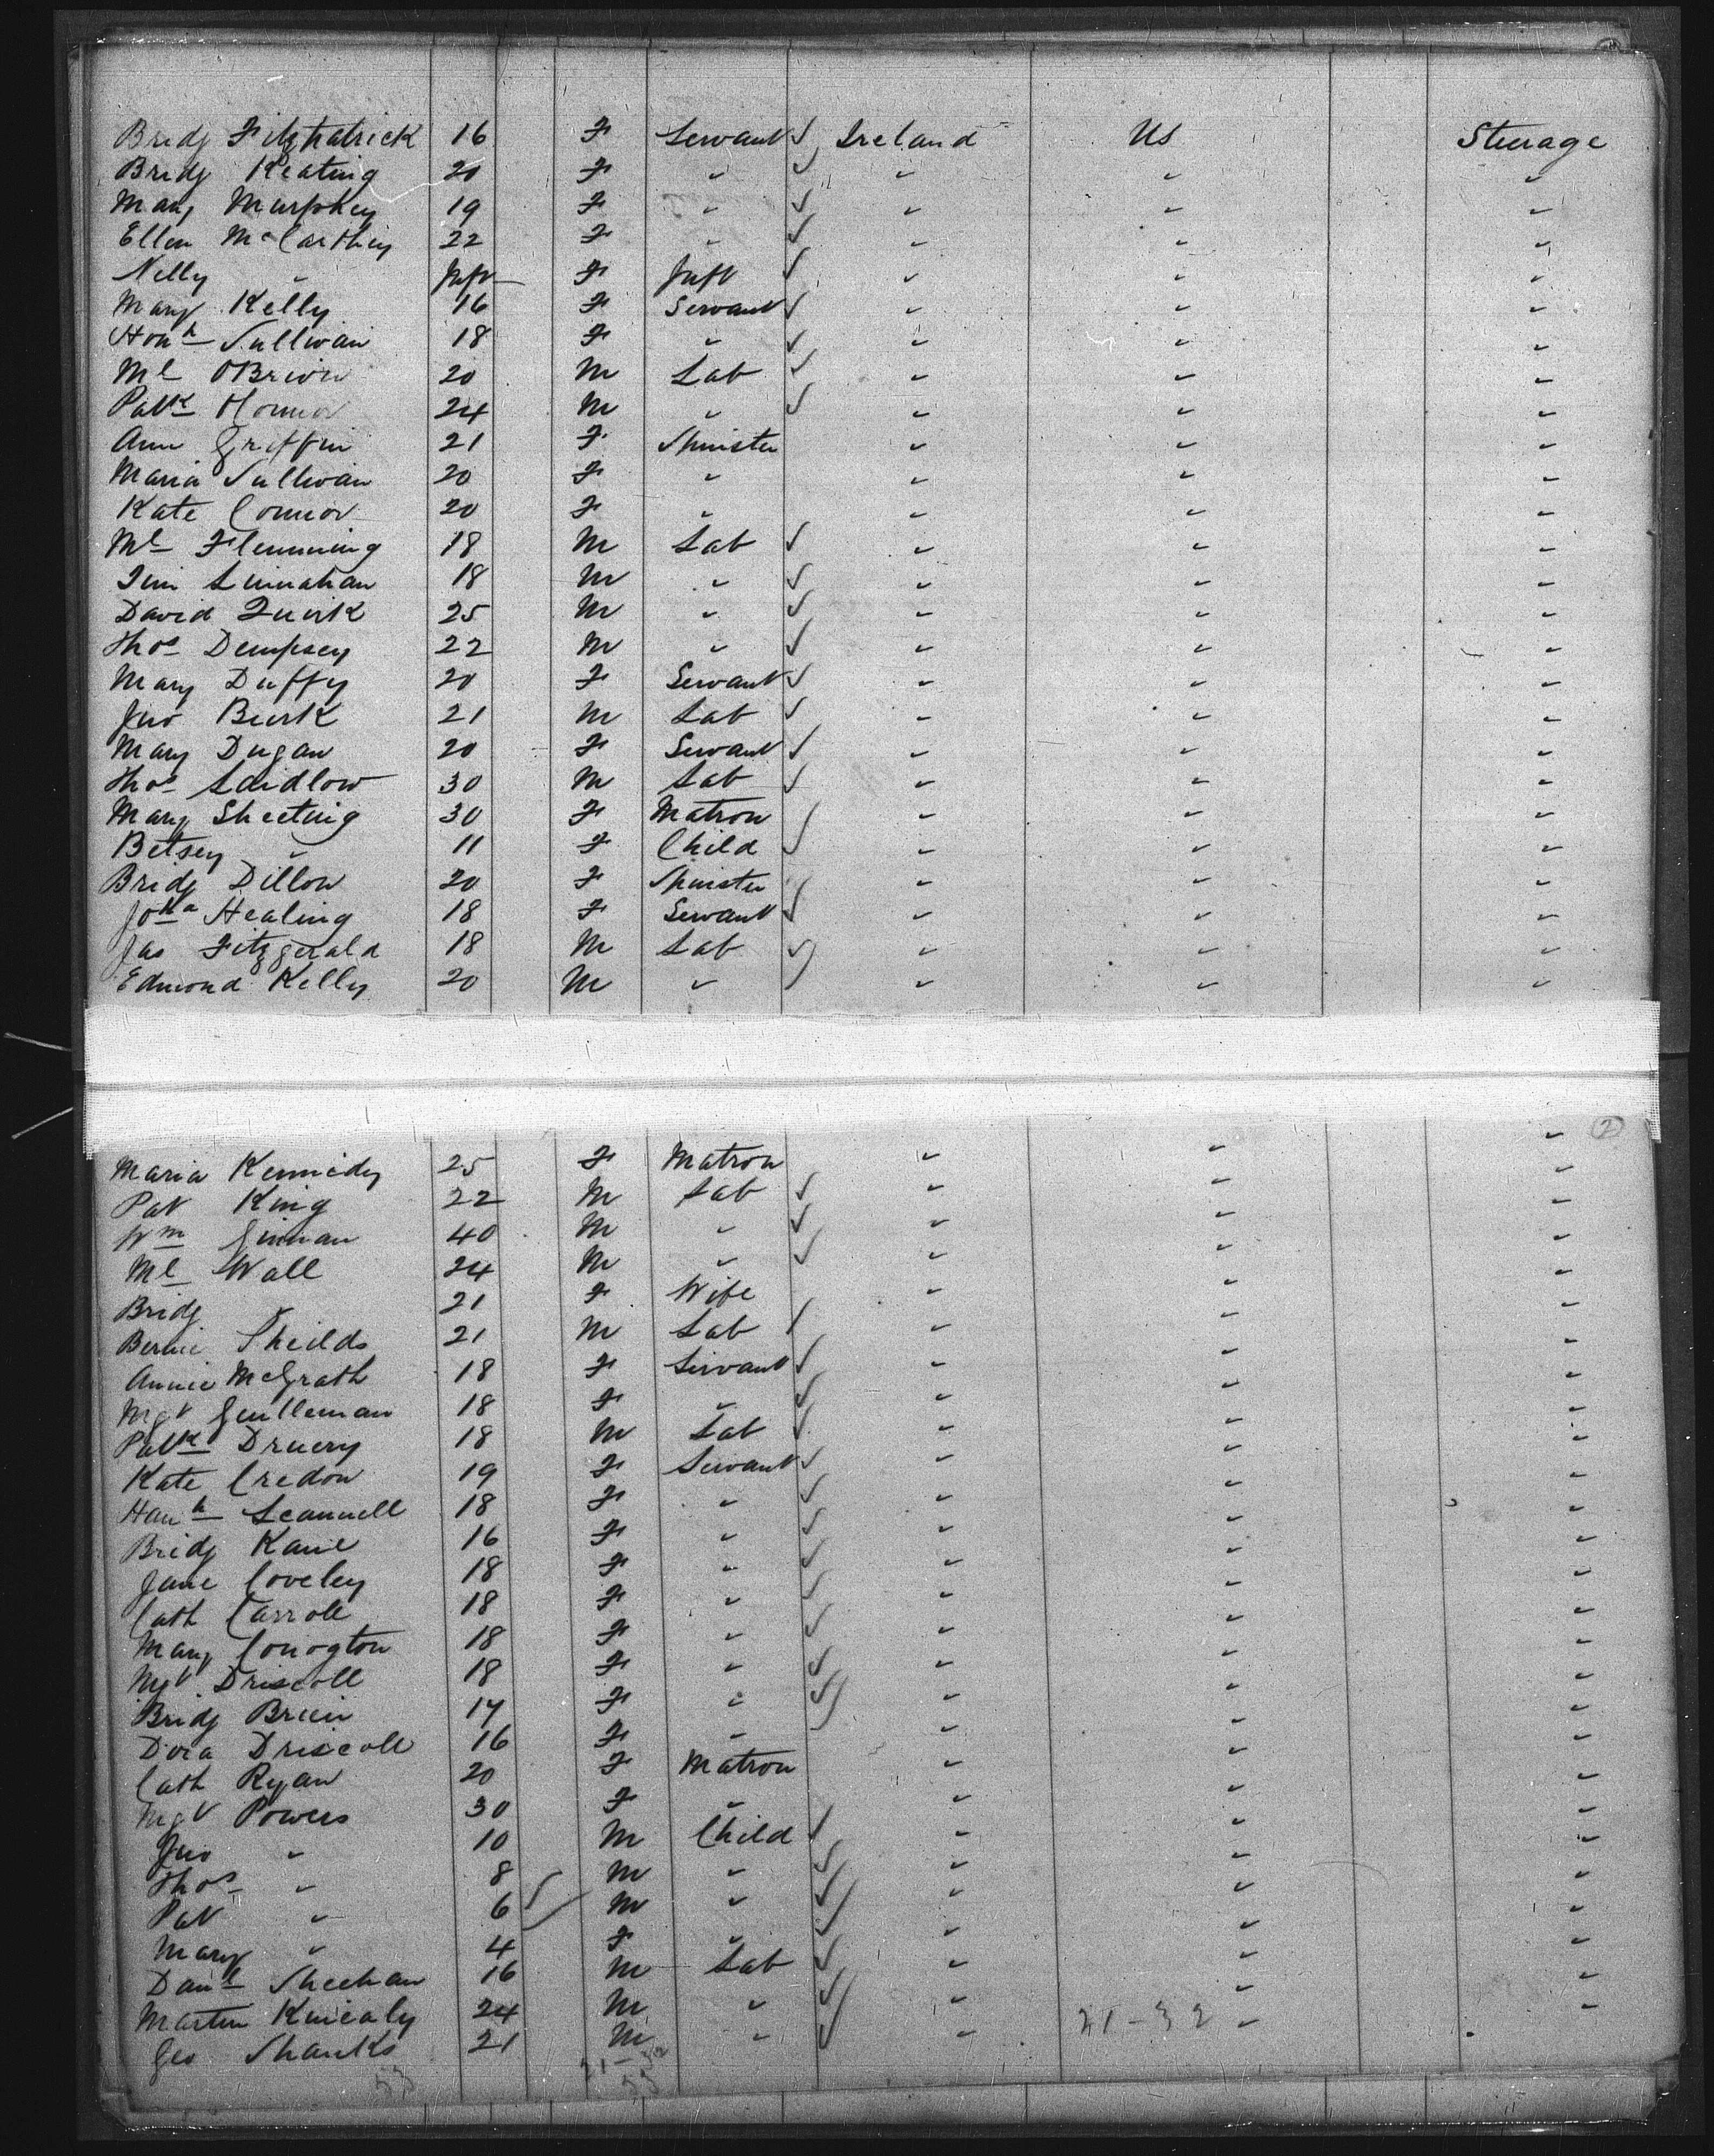 Bridg Fitzpatrick 16 F Servant Ireland US Steerage
Bridg Keating 20 F " " " "
Mary Murphey 19 F " " " "
Ellen McCarthy 22 F " " " "
Nelly " Inft F Inft " " "
Mary Kelly 16 F Servant " " "
Honh Sullivan 18 F " " " "
Ml OBrien 20 M Lab " " "
Patk Connor 24 M " " " "
Ann Griffin 21 F Spinster " " "
Maria Sullivan 20 F " " " "
Kate Connor 20 F " " " "
Ml Flemming 18 M Lab " " "
Tim Linnahan 18 M " " " "
David Quirk 25 M " " " "
Thos Dempsey 22 M " " " "
Mary Duffy 20 F Servant " " "
Jno Burk 21 M Lab " " "
Mary Dugan 20 F Servant " " "
Thos Laidlow 30 M Lab " " "
Mary Sheeting 30 F Matron " " "
Betsey " 11 F Child " " "
Bridg Dillon 20 F Spinster " " "
Joha Healing 18 F Servant " " "
Jas Fitzgerald 18 M Lab " " "
Edmond Kelly 20 M " " " "
2
Maria Kennedy 25 F Matron " " "
Pat King 22 M Lab " " "
Wm Ginnan 40 M " " " "
Ml Wall 24 M " " " "
Bridg " 21 F Wife " " "
Bernie Sheilds 21 M Lab " " "
Annie McGrath 18 F Servant " " "
Mgt Gentleman 18 F " " " "
Patk Druery 18 M Lab " " "
Kate Credon 19 F Servant " " "
Hanh Scannell 18 F " " " "
Bridg Kane 16 F " " " "
Jane Coveley 18 F " " " "
Cath Carroll 18 F " " " "
Mary Conogton 18 F " " " "
Mgt Driscoll 18 F " " " "
Bridg Brien 17 F " " " "
Dora Driscoll 16 F " " " "
Cath Ryan 20 F Matron " " "
Mgt Powers 30 F " " " "
Jno " 10 M Child " " "
Thos " 8 M " " " "
Pat " 6 M " " " "
Mary " 4 F " " " "
Danl Sheehan 16 M Lab " " "
Martin Kniealy 24 M " " " "
Geo Shanks 21 M " " 21-32 " "
53 21-32
53